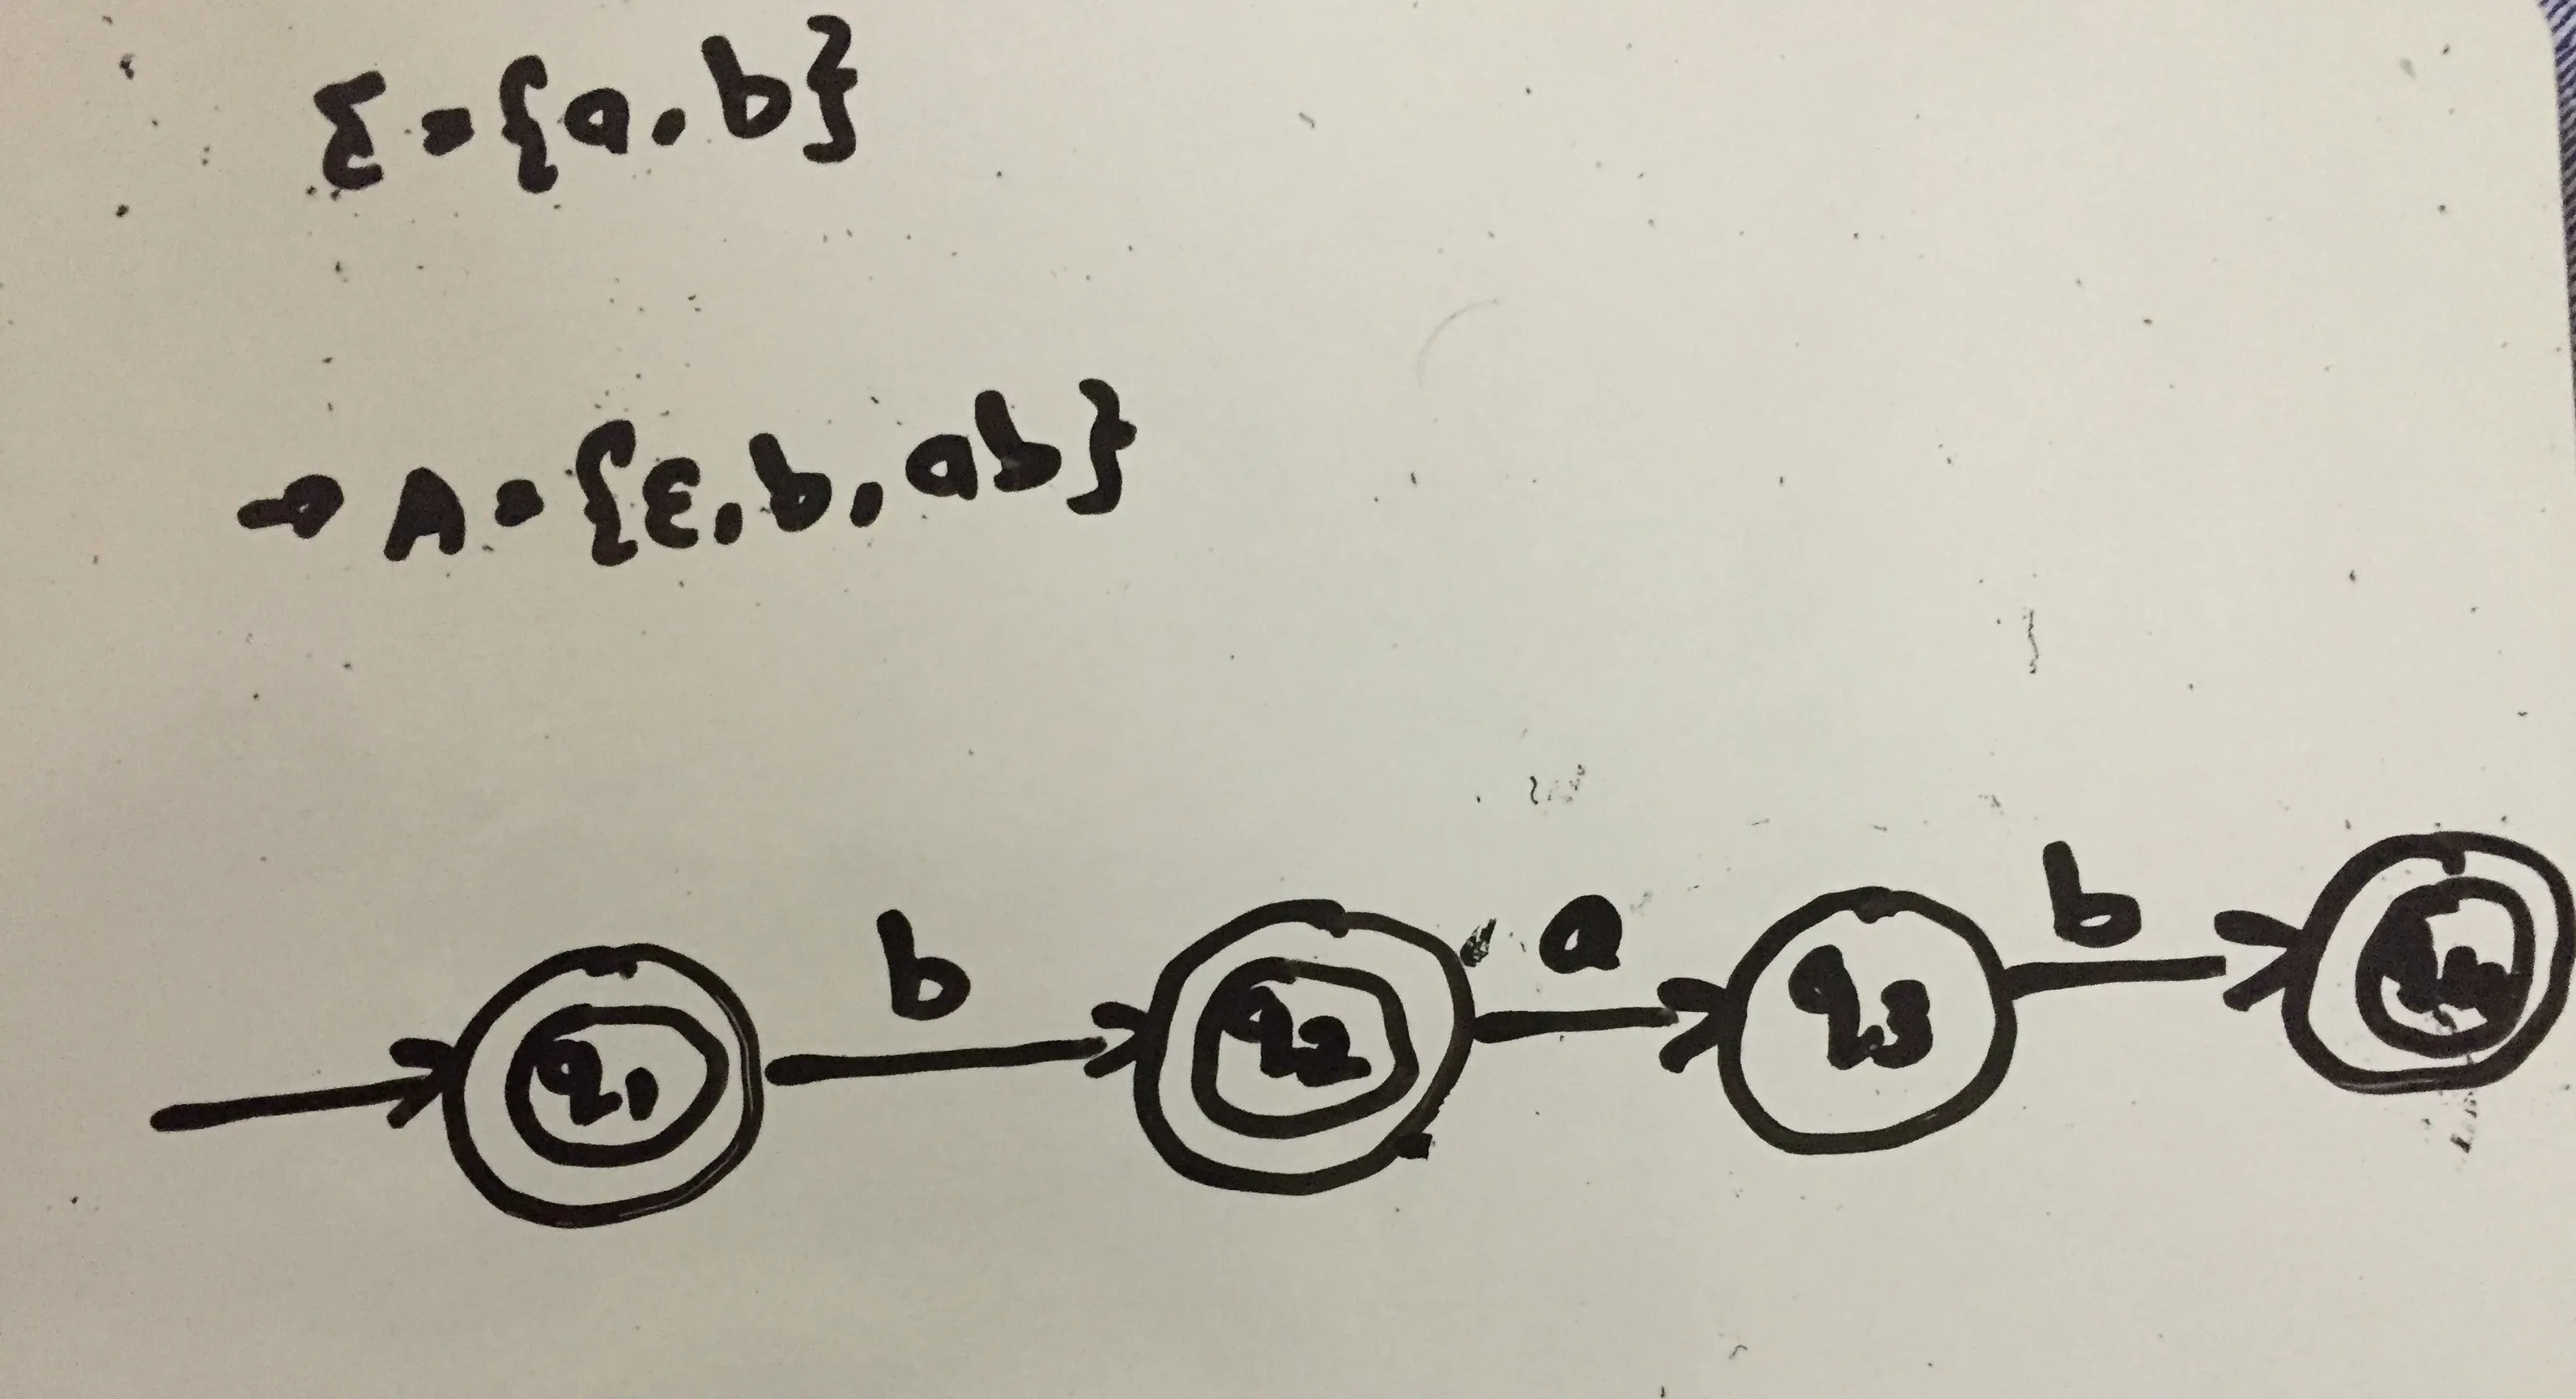 Σ={a,b}
→ A={ε,b,ab}
b a b
q1 q2 q3